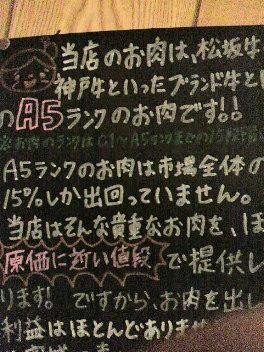 当店のお肉は、松坂牛
神戸牛といったブランド牛と
のA5ランクのお肉です!!
お肉のランクはC1〜A5ランクまでの15段
A5ランクのお肉は市場全体の
15%しか出回っていません。
当店はそんな貴重なお肉を、ほ
原価に近い値段で提供し
ります! ですから、お肉を出し
利益はほとんどありませ